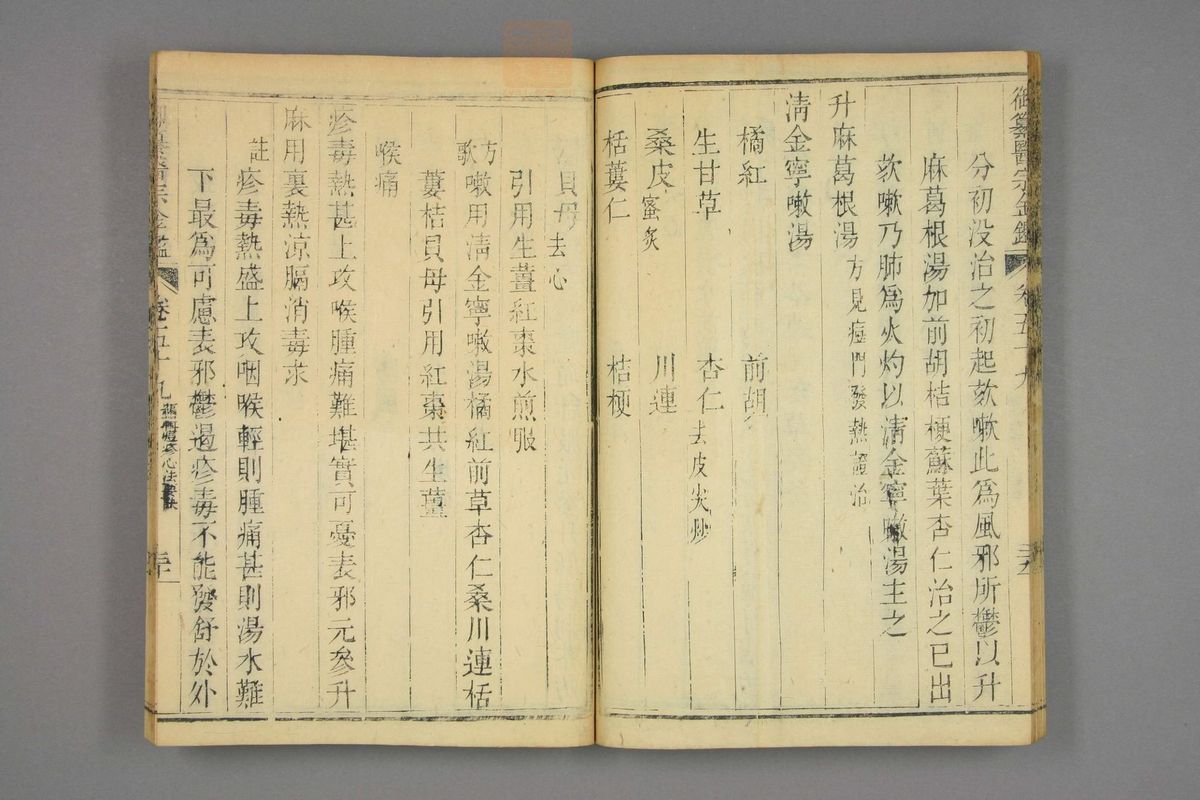 御纂醫宗金鑑 卷五十九
分初没治之初起欬嗽此爲風邪所鬱以升
麻葛根湯加前胡桔梗蘇葉杏仁治之已出
欬嗽乃肺爲火灼以清金寧嗽湯主之
升麻葛根湯 方見痘門發熱證治
清金寧嗽湯
橘紅 前胡
生甘草 杏仁 去皮尖炒
桑皮 蜜炙 川連
栝蔞仁 桔梗
貝母 去心
引用生薑紅棗水煎服
方歌 嗽用清金寧嗽湯橘紅前草杏仁桑川連栝
蔞桔貝母引用紅棗共生薑
喉痛
疹毒熱甚上攻喉腫痛難堪實可憂表邪元參升
麻用裏熱涼膈消毒求
註 疹毒熱盛上攻咽喉輕則腫痛甚則湯水難
下最爲可慮表邪鬱遏疹毒不能發舒於外
醫宗金鑑 卷五十九 痘疹心法要訣